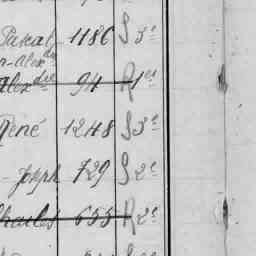 Pascal 1186 S 3e
n-Alexdre
Alexdre 94 R 1er
René 1248 S 3e
Joseph 729 S 2e
Charles 655 R 2e